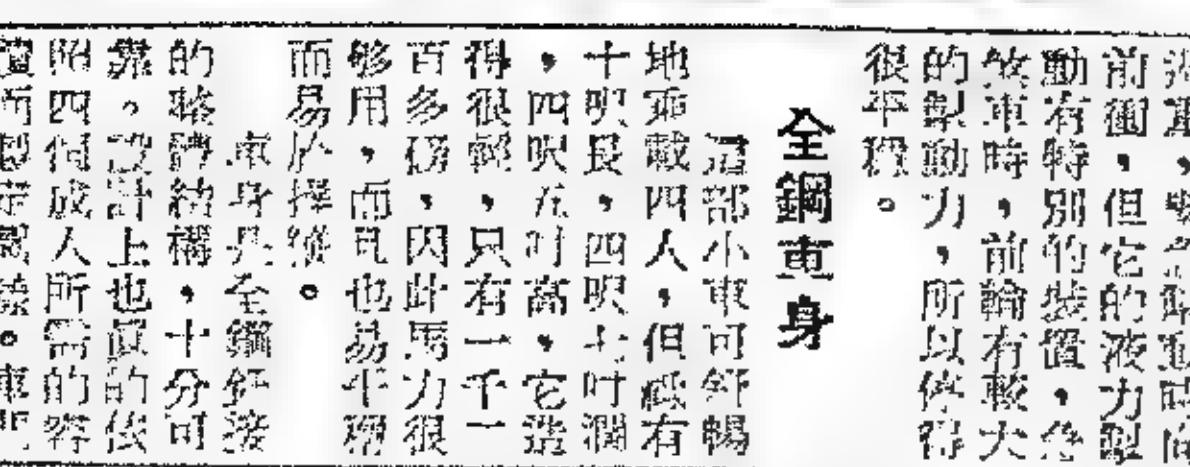 前衝，但它的液力制
動有特別的裝置，
煞車時，前輪有較大
的制動力，所以停得
很平穩。
全鋼車身
這部小車可舒暢
地乘載四人，但祗有
十呎長，四呎七吋濶
，四呎五吋高，它造
得很輕，只有一千一
百多磅，因此馬力很
够用，而且也易平穩
而易於操縱。
車身是全鋼銲接
的骼體結構，十分可
靠。設計上也真的依
照四個成人所需的容